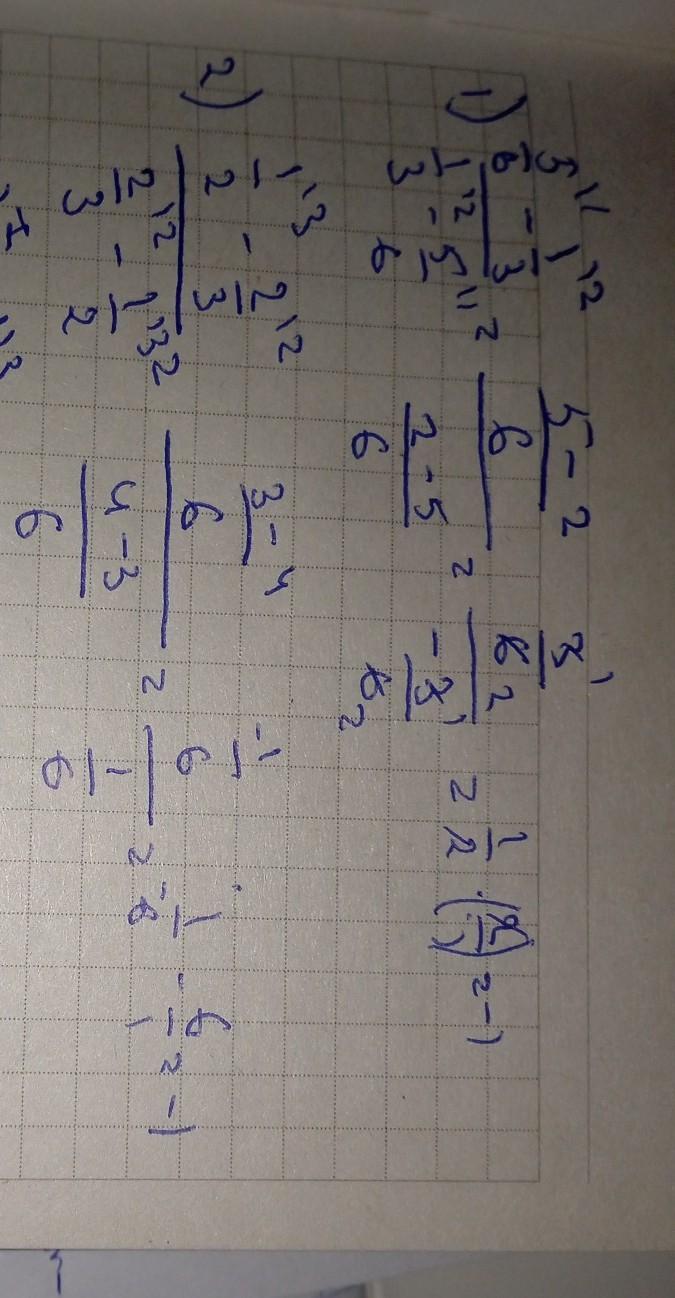 1) (5/6 '1 - 1/3 '2) / (1/3 '2 - 5/6 '1) = ((5-2)/6) / ((2-5)/6) = (3/6 1 2) / (-3/6 1 2) = 1/2 · (2/1) = -1
2) (1/2 '3 - 2/3 '2) / (2/3 '2 - 1/2 '3) = ((3-4)/6) / ((4-3)/6) = (-1/6) / (1/6) = -1/6 · 6/1 = -1